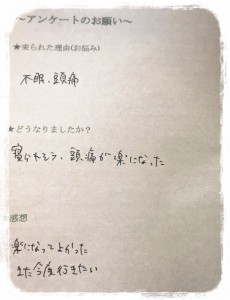 ～アンケートのお願い～
★来られた理由(お悩み)
不眠、頭痛
★どうなりましたか？
寝られそう、頭痛が楽になった
感想
楽になってよかった
また今度行きたい